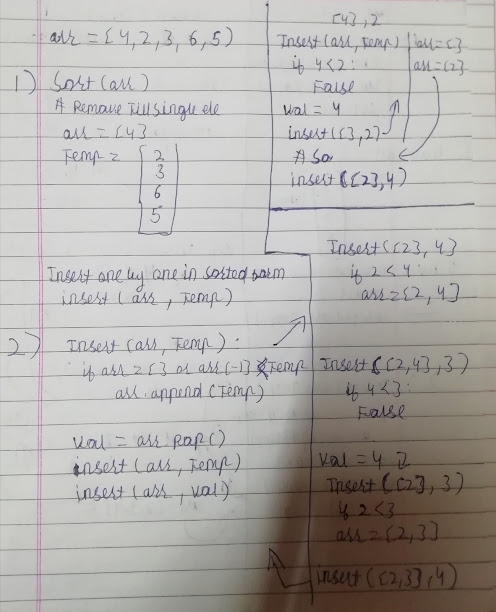 arr = [4, 2, 3, 6, 5]
1) Sort (arr)
# Remove till single ele
arr = [4]
Temp = [2
3
6
5]
Insert one by one in sorted
insert (arr, Temp)
2) Insert (arr, Temp):
if arr = [] or arr[-1] < Temp
arr.append (Temp)
val = arr pop()
insert (arr, Temp)
insert (arr, val)
[4], 2
Insert (arr, Temp)
if 4<2:
False
val = 4
insert ([], 2)
# So
insert ([2], 4)
arr = []
arr = [2]
Insert ([2], 4]
if 2<4:
arr = [2, 4]
Insert ([2, 4], 3)
if 4<3:
False
val = 4
Insert ([2], 3)
if 2<3
arr = [2, 3]
insert ([2, 3], 4)